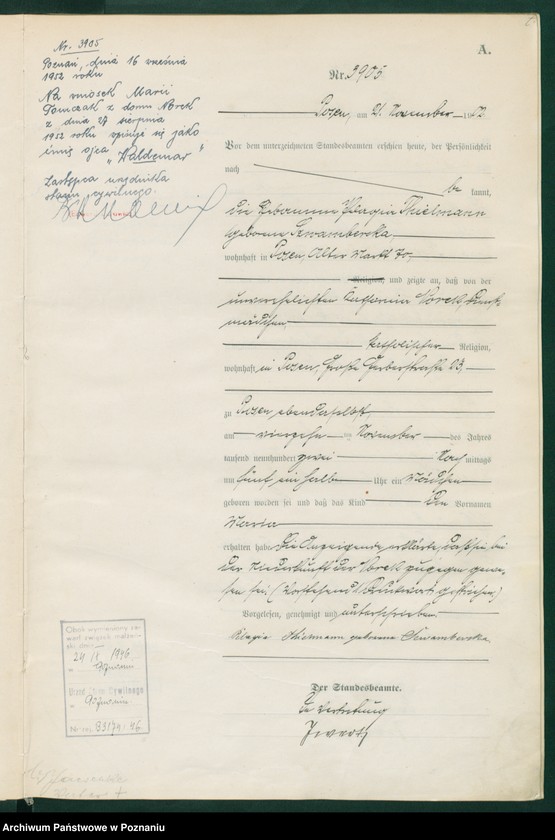 Nr. 3905
Poznań, dnia 16 września
1952 roku
Na wniosek Marii
Tomczak z domu Norek
z dnia 27 sierpnia
1952 roku wpisuje się jako
imię ojca „Waldemar"
Zastępca urzędnika
stanu cywilnego.
A.
Nr. 3905
Posen, am 21. November 1902
Vor dem unterzeichneten Standesbeamten erschien heute, der Persönlichkeit
nach be kannt,
die Hebamme Thielmann
geborene Szwamberska
wohnhaft in Posen, Alter Markt 70,
Religion, und zeigte an, daß von der
unverehelichten Katharina Norek, Dienst-
mädchen,
katholischer Religion,
wohnhaft in Posen, Große Gerberstraße 23,
zu Posen ebendaselbst,
am vierzehn ten November des Jahres
tausend neunhundert zwei Nach mittags
um fünf ein halb Uhr ein Mädchen
geboren worden sei und daß das Kind den Vornamen
Maria
erhalten habe. Die Anzeigende erklärte, daß sie bei
der Niederkunft der Norek zugegen gewe-
sen sei. (Vorstehend Druckwort gestrichen)
Vorgelesen, genehmigt und unterschrieben.
Thielmann geborene Szwamberska
Der Standesbeamte.
In Vertretung
małżeń-
24 IX 1946
Urząd Stanu Cywilnego
Archiwum Państwowe w Poznaniu